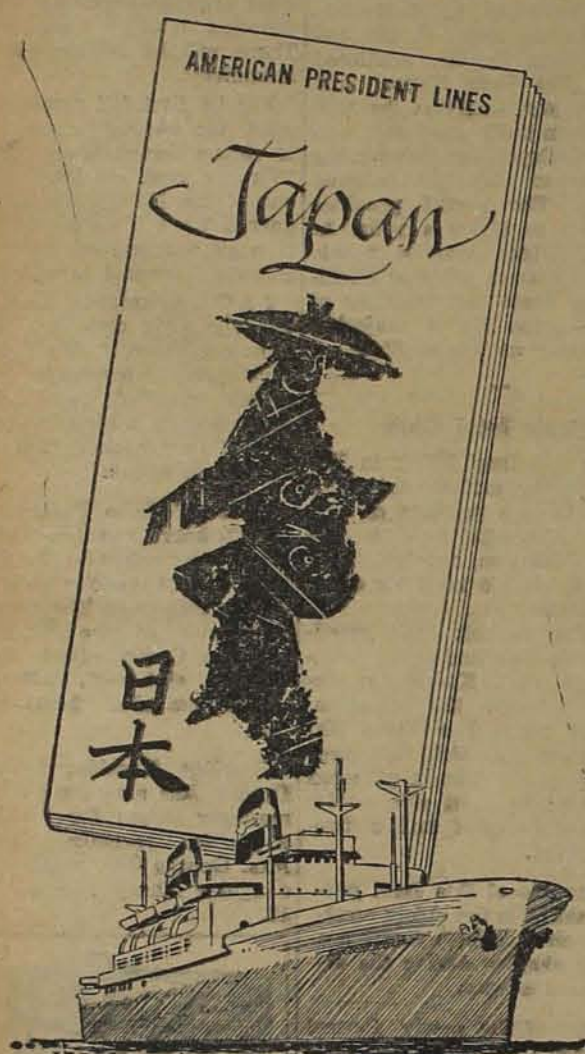 AMERICAN PRESIDENT LINES
Japan
日本